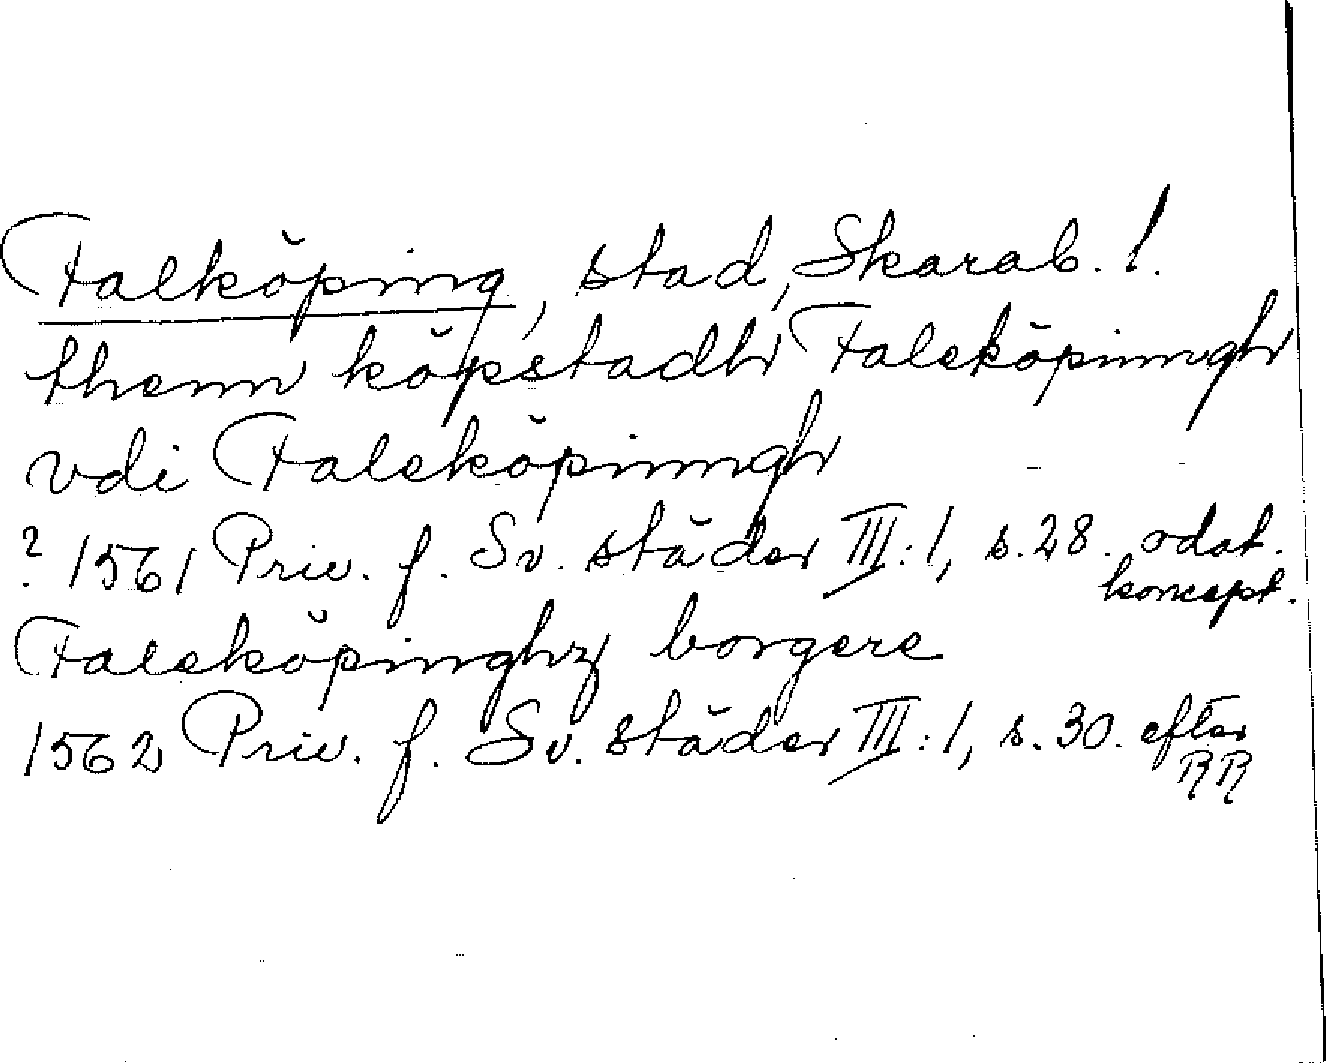 Falköping, stad, Skarab. l.
thenn köpstadh Faleköpinngh
vdi Faleköpinngh
? 1561 Priv. f. Sv. städer III:1, s. 28. odat. koncept.
Faleköpinghz borgere
1562 Priv. f. Sv. städer III:1, s. 30. efter RR